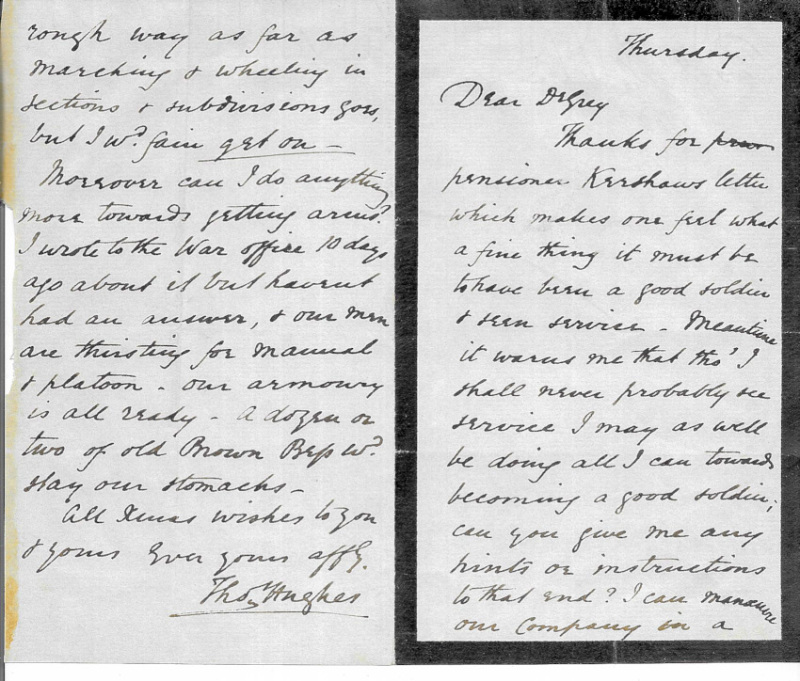 Thursday.
Dear DeGrey
Thanks for
pensioner Kershaws letter
which makes one feel what
a fine thing it must be
to have been a good soldier
& seen service - Meantime
it warns me that tho' I
shall never probably see
service I may as well
be doing all I can towards
becoming a good soldier;
can you give me any
hints or instructions
to that end? I can manœuvre
our Company in a
rough way as far as
marching & wheeling in
sections & subdivisions goes,
but I wd. fain get on -
Moreover can I do anything
more towards getting arms?
I wrote to the War office 10 days
ago about it but havent
had an answer, & our men
are thirsting for manual
& platoon - our armoury
is all ready - A dozen or
two of old Brown Bess wd.
stay our stomachs -
All Xmas wishes to you
& yours Ever yours affly.
Thos Hughes